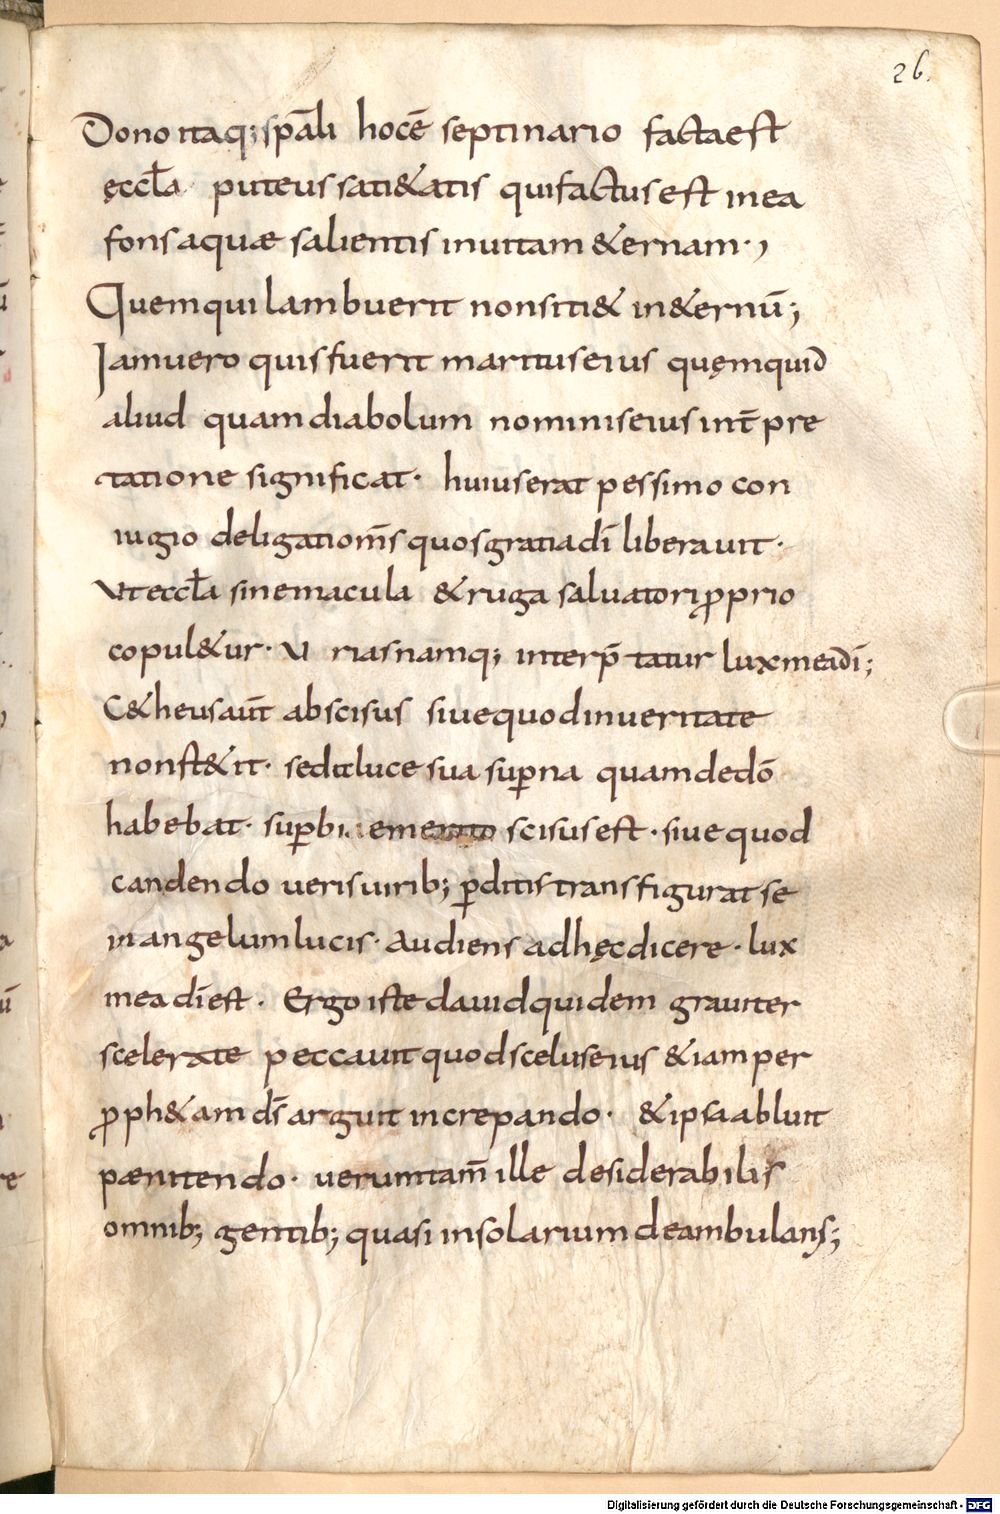 26.
Dono itaq; sp̄ali hoc ē septinario facta est
ęccl̄a puteus sati&atis qui factus est in ea
fons aquæ salientis in uitam &ernam·,
Quem qui lambuerit non siti& in &ernū;
Iam uero quis fuerit maritus eius quęm quid
aliud quam diabolum nominis eius int̄pre
tatione significat· huius erat pessimo con
iugio deligati om̄s quos gratia dī liberauit·
Ut eccl̄a sine macula & ruga saluatori ꝓprio
copul&ur· Urias namq; interp̄tatur lux mea dī;
C&heus aūt abscisus siue quod in ueritate
non st&it· sed it luce sua suꝑna quam de dō
habebat· suꝑbi emerito scisus est· siue quod
candendo ueris uirib; ꝑditis transfigurat se
in angelum lucis· audiens adhęc dicere· lux
mea dī est· Ergo iste dauid quidem grauiter
scelerate peccauit quod scelus eius &iam per
ꝓph&am dś arguit increpando· & ipsa abluit
pænitendo· uerumtam̄ ille desiderabilis
omnib; gentib; quasi in solarium deambulans;
Digitalisierung gefördert durch die Deutsche Forschungsgemeinschaft - DFG